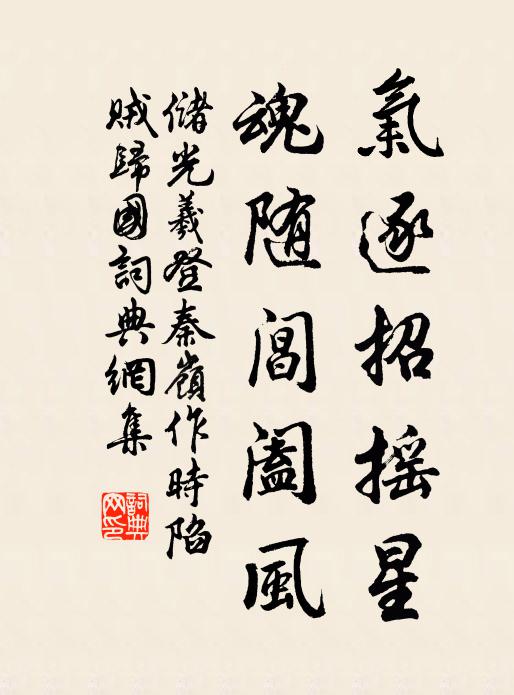 氣逐招摇星
魂随閶阖風
儲光羲登秦嶺作時陷
賊歸國詞典網集
詞典網印